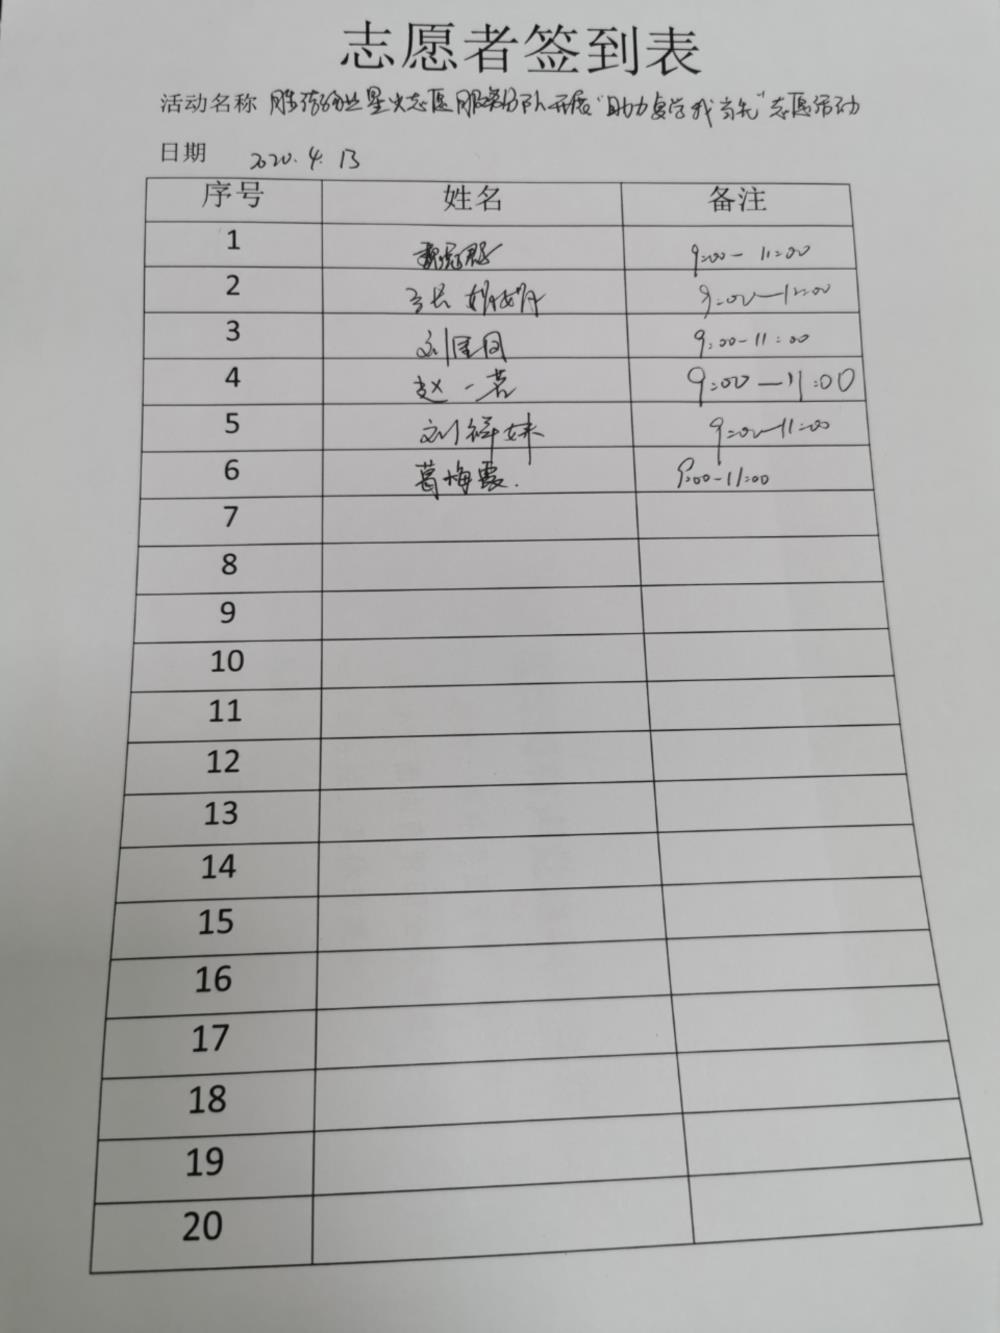 志愿者签到表
活动名称 星火志愿服务分队开展"助力复学我当先"志愿活动
日期 2020.4.13
序号 姓名 备注
1 9:00-11:00
2 9:00-11:00
3 刘 9:00-11:00
4 赵一茗 9:00-11:00
5 刘祥妹 9:00-11:00
6 葛梅霞. 9:00-11:00
7
8
9
10
11
12
13
14
15
16
17
18
19
20